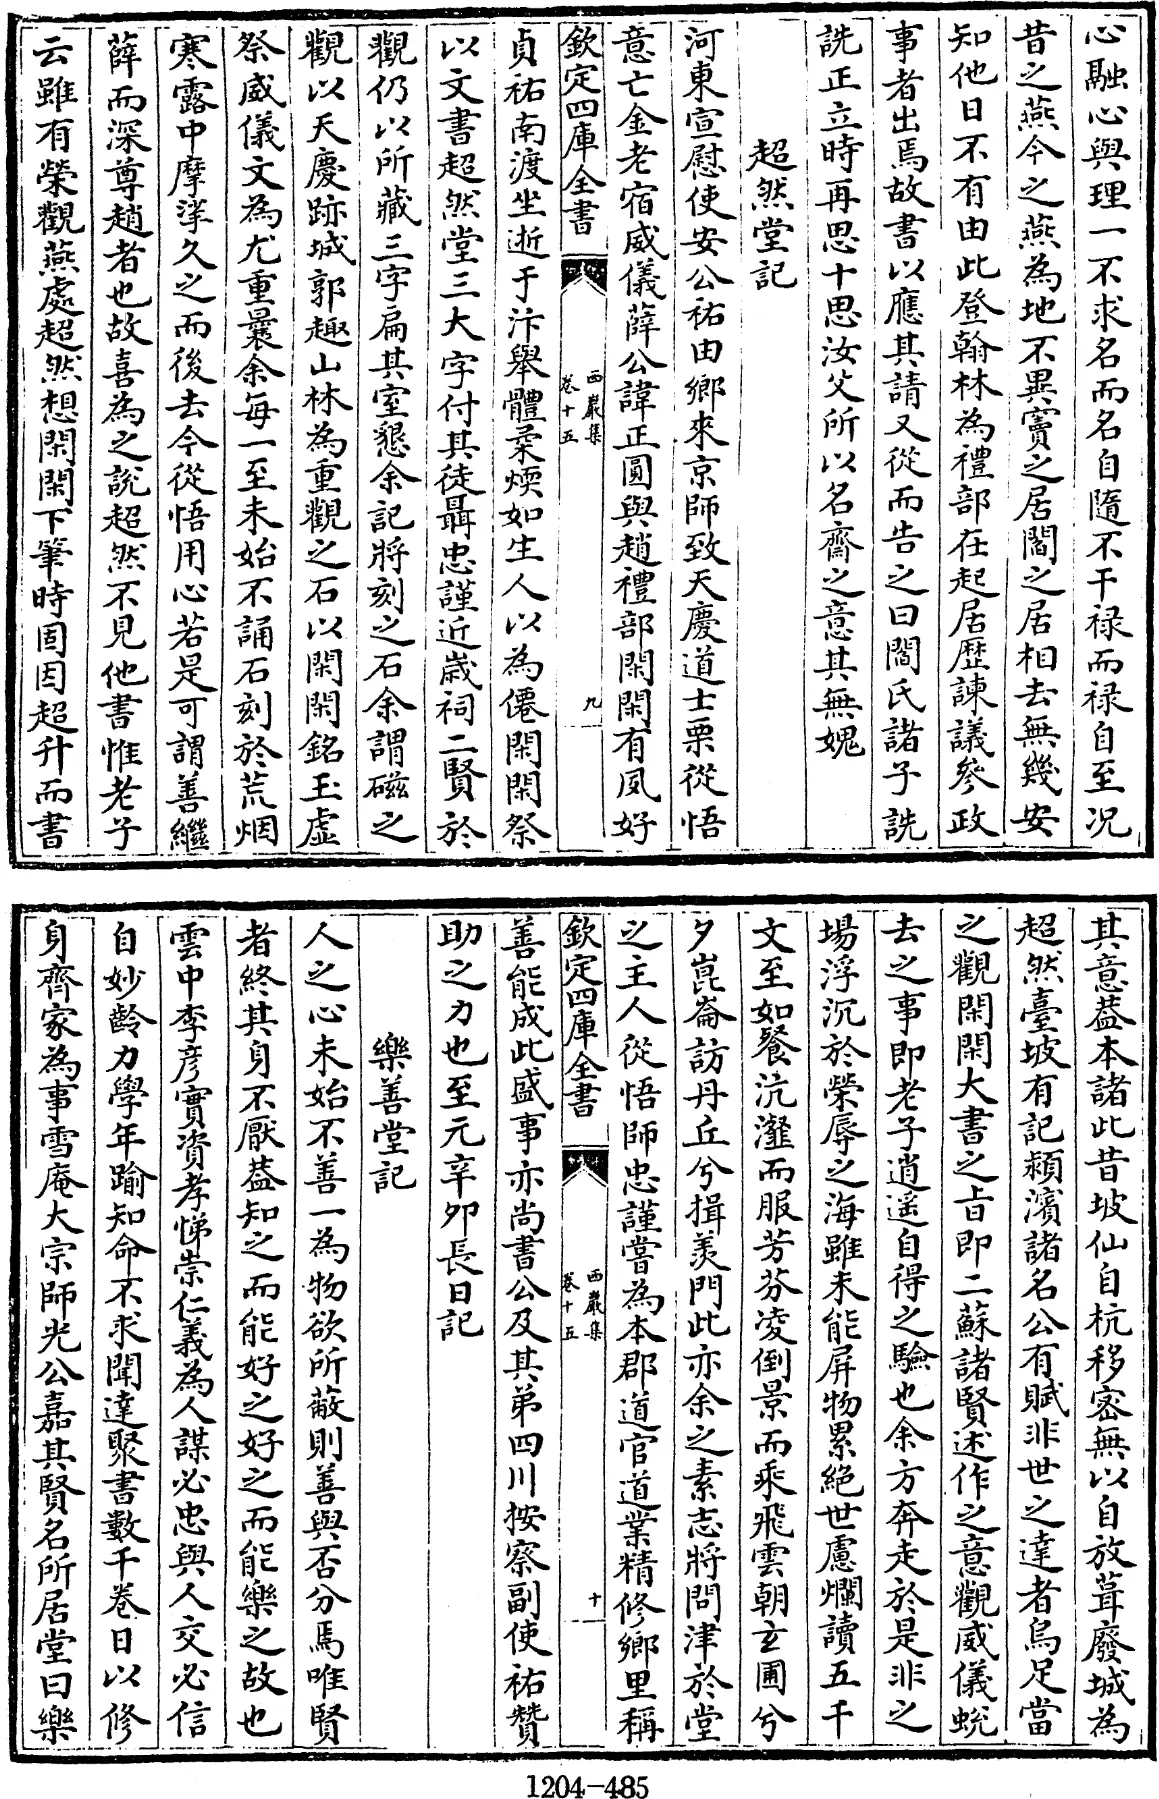 心融心與理一不求名而名自隨不干禄而禄自至况
昔之燕今之燕為地不異竇之居閻之居相去無幾安
知他日不有由此登翰林為禮部在起居歴諫議參政
事者出焉故書以應其請又從而告之曰閻氏諸子詵
詵正立時再思十思汝父所以名齋之意其無媿
超然堂記
河東宣慰使安公祐由鄉來京師致天慶道士栗從悟
意亡金老宿威儀薛公諱正圓與趙禮部閑閑有夙好
欽定四庫全書
西巖集
卷十五
九
貞祐南渡坐逝于汴舉體柔煗如生人以為僊閑閑祭
以文書超然堂三大字付其徒聶忠謹近歲祠二賢於
觀仍以所藏三字扁其室懇余記將刻之石余謂磁之
觀以天慶跡城郭趣山林為重觀之石以閑閑銘玉虛
祭威儀文為尤重曩余每一至未始不誦石刻於荒烟
寒露中摩挲久之而後去今從悟用心若是可謂善繼
薛而深尊趙者也故喜為之說超然不見他書惟老子
云雖有榮觀燕處超然想閑閑下筆時固因超升而書
其意葢本諸此昔坡仙自杭移密無以自放葺廢城為
超然臺坡有記潁濱諸名公有賦非世之達者烏足當
之觀閑閑大書之旨即二蘇諸賢述作之意觀威儀蛻
去之事即老子逍遥自得之驗也余方奔走於是非之
場浮沉於榮辱之海雖未能屏物累絶世慮爛讀五千
文至如餐沆瀣而服芳芬凌倒景而乘飛雲朝玄圃兮
夕崑崙訪丹丘兮揖羡門此亦余之素志將問津於堂
之主人從悟師忠謹嘗為本郡道官道業精修鄉里稱
欽定四庫全書
西巖集
卷十五
十
善能成此盛事亦尚書公及其弟四川按察副使祐贊
助之力也至元辛卯長日記
樂善堂記
人之心未始不善一為物欲所蔽則善與否分焉唯賢
者終其身不厭葢知之而能好之好之而能樂之故也
雲中李彦實資孝悌崇仁義為人謀必忠與人交必信
自妙齡力學年踰知命不求聞達聚書數千卷日以修
身齊家為事雪庵大宗師光公嘉其賢名所居堂曰樂
1204-485